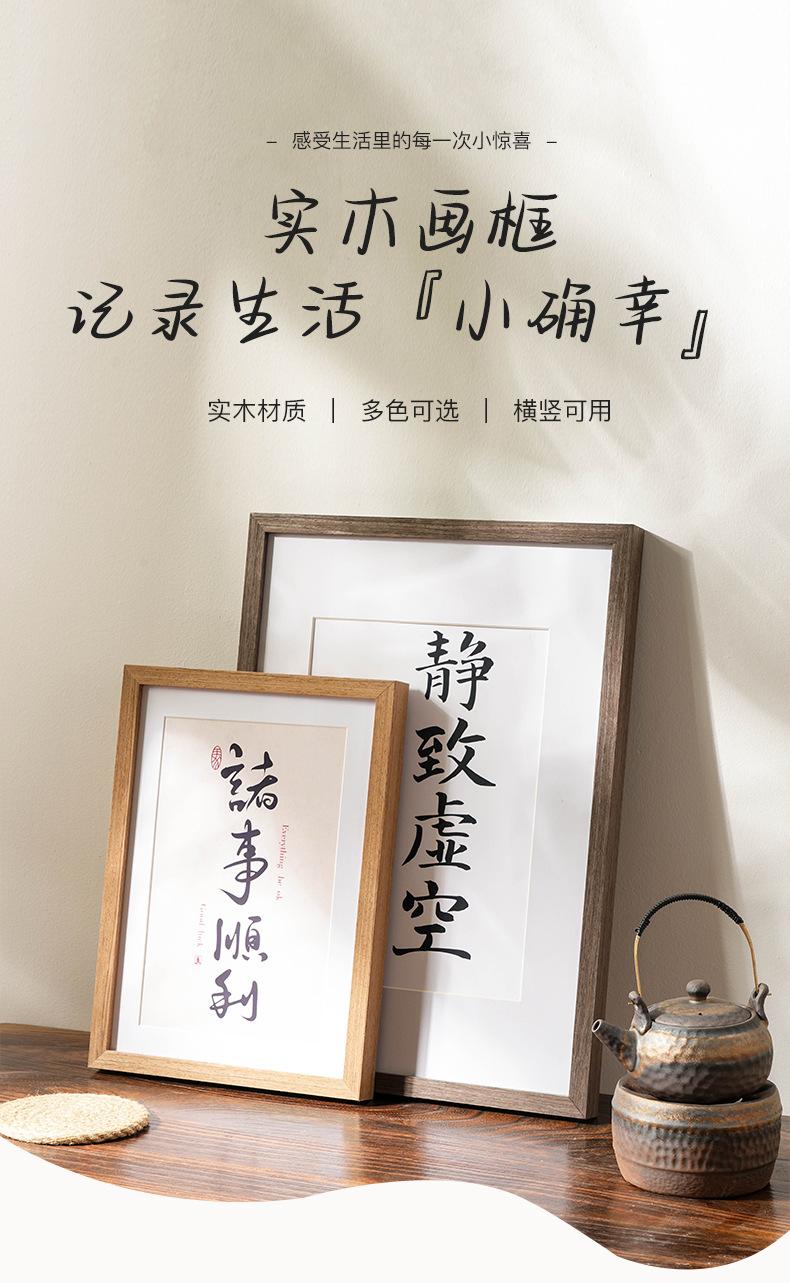 – 感受生活里的每一次小惊喜 –
实木画框
记录生活『小确幸』
实木材质 | 多色可选 | 横竖可用
静致虚空
諸事順利
Everything be ok
Good luck